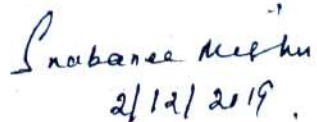 Srabanee Mishra
2/12/2019.